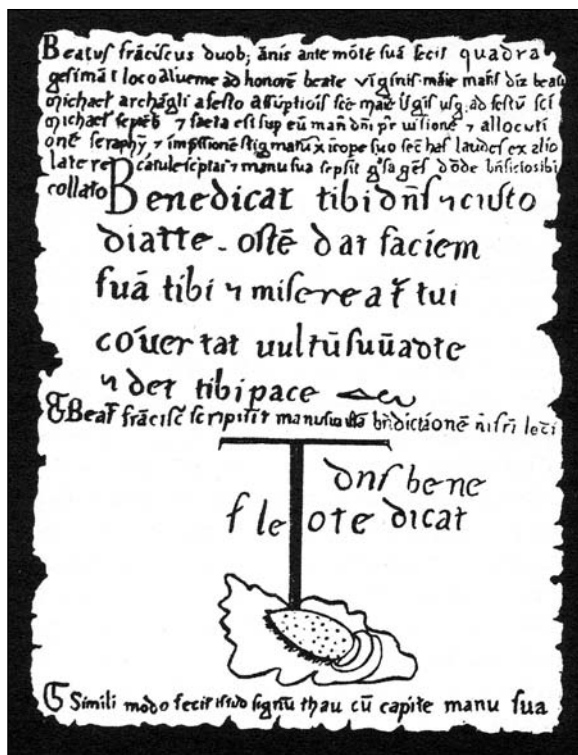 Beatus frāciscus duob; ānis ante mōtē suā fecit quadra
gesimā ī loco alverne ad honorē beate v̄ḡinis marie matris
michael archāgli a festo assūptiois scē marie usq; ad festū scī
michael septēb ⁊ facta est sup eū man dn̄i pr visionē ⁊ allocuti
onē seraphȳ ⁊ impssionē stigmatū x̄ in corpe suo fec̄ has laudes ex alio
latere cátule sc̄ptas ⁊ manu sua sc̄psit grās agēs dōo de bn̄ficio sibi
collato Benedicat tibi dn̄s ⁊ custo
diat te. ostē dat faciem
suā tibi ⁊ misereat̄ tui
cōuertat uultū suū ad te
⁊ det tibi pace
Beat̄ frācisc̄ scripsit manu sua istā bn̄dictionē
dn̄s bene
f le o te dicat
Simili modo fecit istud signū thau cū capite manu sua